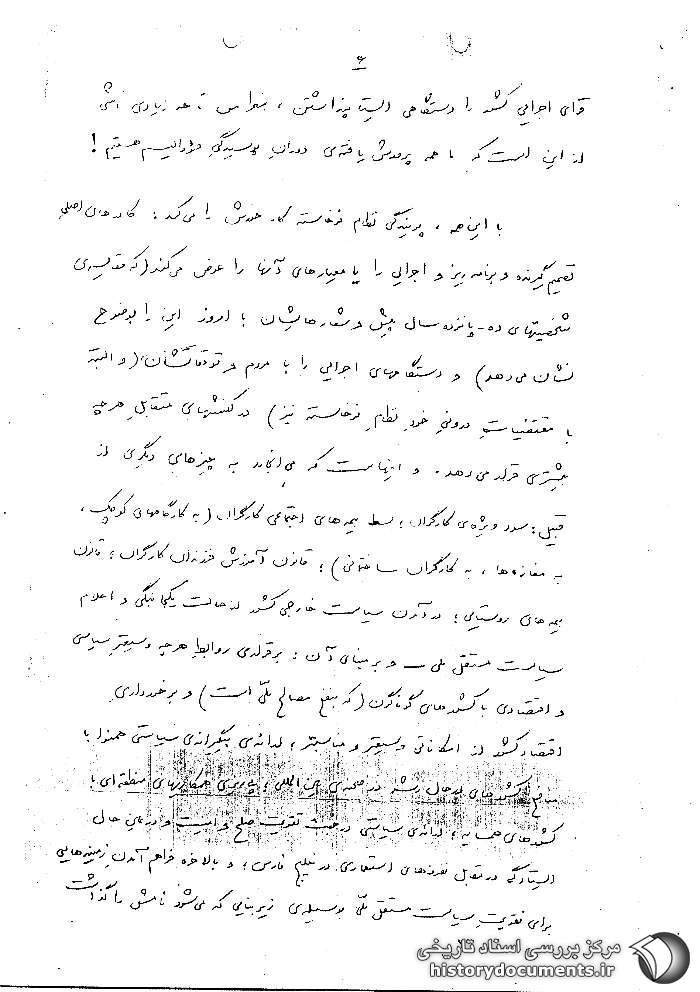 ۶
قوای اجرایی کشور را دستگاهی ایستا پنداشتن ، بنظر من تا حد زیادی ناشی
از این است که ما همه پرورش یافته‌ی دوران پوسیدگی فئودالیسم هستیم !
با این همه ، پویندگی نظام نوخاسته کار خودش را می‌کند : کادرهای اصلی
تصمیم گیرنده و برنامه ریز و اجرایی را یا معیارهای آنها را عوض می‌کند (که مقایسه‌ی
شخصیتهای ده - پانزده سال پیش و شعارهایشان با امروز این را بوضوح
نشان می‌دهد) و دستگاههای اجرایی را با مردم و توقعاتشان (و البته
با مقتضیات درونی خود نظام نوخاسته نیز) در کنشهای متقابل هرچه
بیشتری قرار می‌دهد . و اینهاست که می‌انجامد به چیزهای دیگری از
قبیل : سود ویژه‌ی کارگران ؛ بسط بیمه‌های اجتماعی کارگران (به کارگاههای کوچک ،
به مغازه‌ها ، به کارگران ساختمانی) ؛ قانون آموزش فرزندان کارگران ؛ قانون
بیمه‌های روستایی ؛ درآوردن سیاست خارجی کشور از حالت یکجانبگی و اعلام
سیاست مستقل ملی و بر مبنای آن : برقراری روابط هرچه وسیعتر سیاسی
و اقتصادی با کشورهای گوناگون (که بنفع مصالح ملی است) و برخورداری
اقتصاد کشور از امکاناتی وسیعتر و مناسبتر ، ارائه‌ی پیگیرانه‌ی سیاستی همنوا با
منافع کشورهای در حال رشد در صحنه‌ی بین المللی ، پی‌ریزی همکاریهای منطقه‌ای با
کشورهای همسایه ، ارائه‌ی سیاستی در جهت تقویت صلح و امنیت و در عین حال
ایستادگی در مقابل نفوذهای استعماری در خلیج فارس ؛ و بالاخره فراهم آمدن زمینه‌هایی
برای تقویت سیاست مستقل ملی بوسیله‌ی زیربنایی که می‌شود نامش را گذاشت
مرکز بررسی اسناد تاریخی
historydocuments.ir